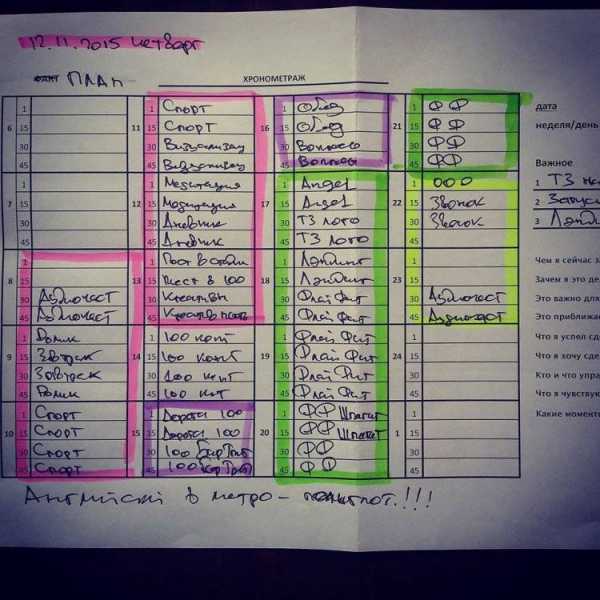 12.11.2015 четверг
ПЛАН
ХРОНОМЕТРАЖ
дата
неделя/день
Важное
1 ТЗ
2 Запус
3 Лэндин
Чем я сейчас за
Зачем я это де
Это важно для
Это приближа
Что я успел сде
Что я хочу сде
Кто и что упра
Что я чувствую
Какие момент
6
1
15
30
45
7
1
15
30
45
8
1
15
30 Аудиочаст
45 Аудиочаст
9
1 Ролик
15 Завтрак
30 Завтрак
45 Ролик
10
1 Спорт
15 Спорт
30 Спорт
45 Спорт
11
1 Спорт
15 Спорт
30 Визуализац
45 Визуализац
12
1 Медитация
15 Медитация
30 Дневник
45 Дневник
13
1 Пост в
15 Пост в 100
30 Креативы
45 Креатив
14
1 100 конт
15 100 конт
30 100 конт
45 100 конт
15
1 Дорога 100
15 Дорога 100
30 100
45 100
16
1 Обед
15 Обед
30 Вопросы
45 Вопросы
17
1 Angel
15 Angel
30 ТЗ лого
45 ТЗ лого
18
1 Лэндинг
15 Лэндинг
30 Флай Фит
45 Флай Фит
19
1 Флай Фит
15 Флай Фит
30 Флай Фит
45 Флай Фит
20
1 ФФ Шпагат
15 ФФ Шпагат
30 ФФ
45 ФФ
21
1 ФФ
15 ФФ
30 ФФ
45 ФФ
22
1 ООО
15 Звонок
30 Звонок
45
23
1
15
30 Аудиочаст
45
24
1
15
30
45
1
1
15
30
45
Английский в метро – !!!